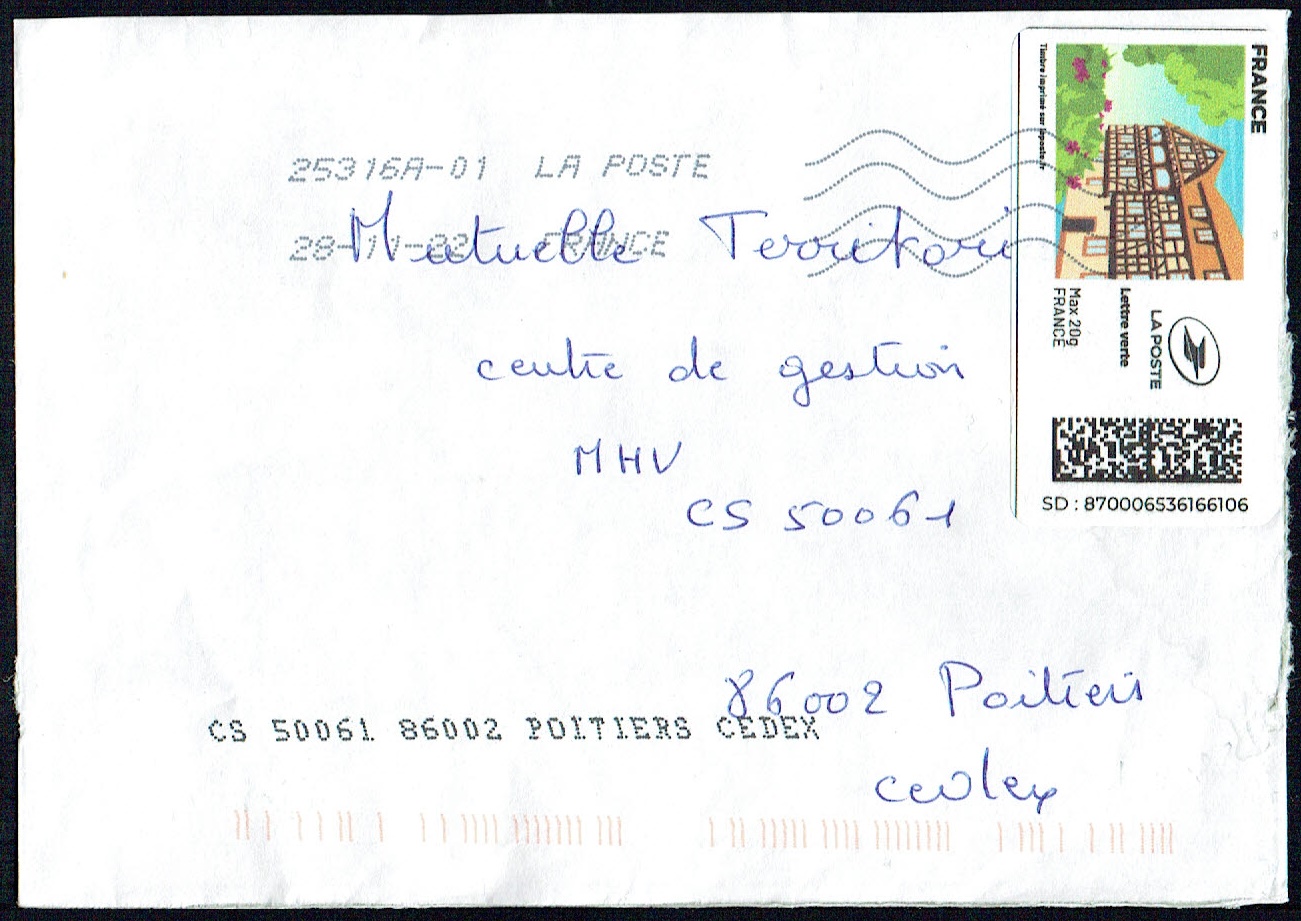 25316A-01 LA POSTE
28-11-22 FRANCE
Mutuelle Territori
centre de gestion
MHV
CS 50061
86002 Poitiers
cedex
CS 50061 86002 POITIERS CEDEX
FRANCE
Timbre imprimé sur laposte.fr
LA POSTE
Lettre verte
Max 20g
FRANCE
SD : 870006536166106